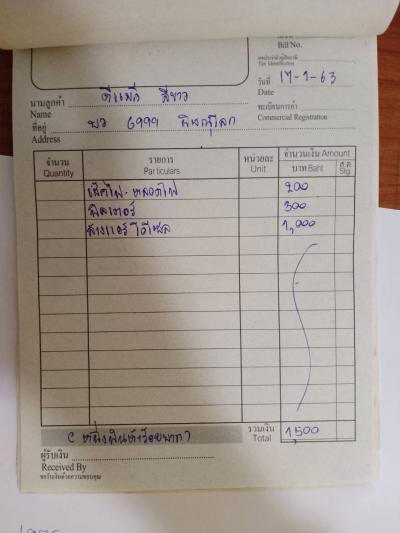 Bill No.
เลขประจำตัวผู้เสียภาษี
Tax Identification
วันที่ 17-1-63
Date
นามลูกค้า ดีแมกซ์ สีขาว
Name
ทะเบียนการค้า
Commercial Registration
ที่อยู่ บว 6999 พิษณุโลก
Address
จำนวน รายการ หน่วยละ จำนวนเงิน Amount
Quantity Particulars Unit บาท Baht ส.ต. Stg.
เช็คไฟ-หลอดไฟ 200
ฟิลเตอร์ 300
ล้างแอร์ 1,000
(หนึ่งพันห้าร้อยบาท) รวมเงิน 1,500
Total
ผู้รับเงิน
Received By
ขอรับเงินด้วยความขอบคุณ